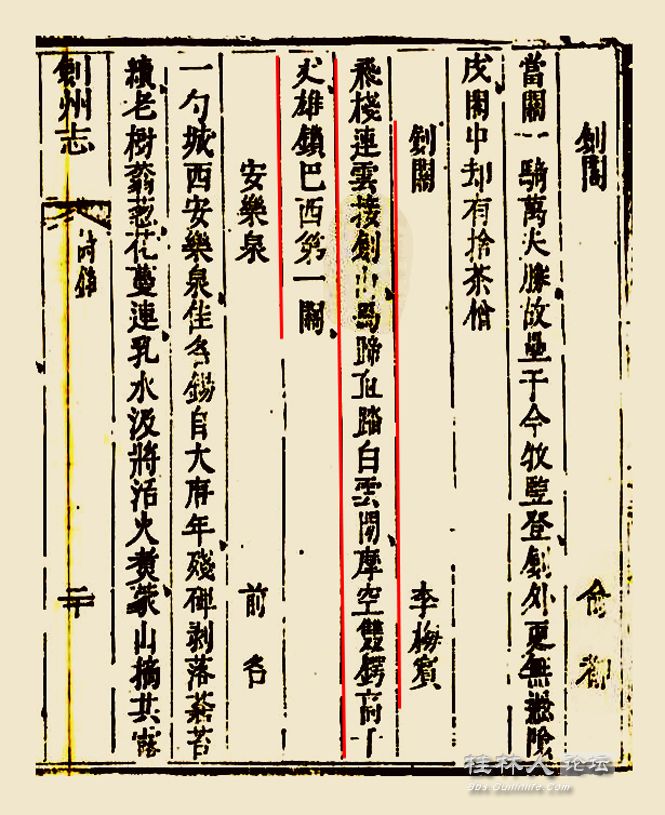 劍閣
當關一騎萬夫故壘于今牧登劍外更無險
戍中却有捨茶僧
劍關 李梅賓
飛棧連雲接劍山馬蹄直踏白雲間摩空雙鍔高千
丈雄鎖巴西第一關
安樂泉 前名
一勺城西安樂泉佳名錫自大唐年殘碑剥落蒼苔
老樹蓊葱花蔓連乳水汲將活火煑蒙山摘共露
劍州志
桂林人论坛
Bbs.Guilinlife.Com